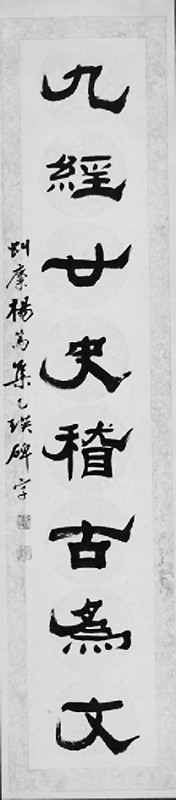 九經廿史稽古為文
蚪麋楊篤集乙瑛碑字